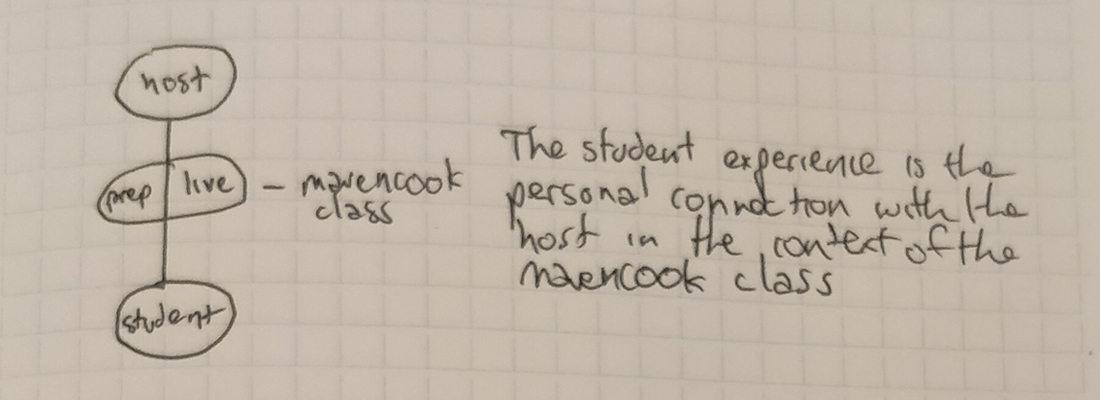 host
prep | live - mavencook
class
student
The student experience is the
personal connection with the
host in the context of the
mavencook class